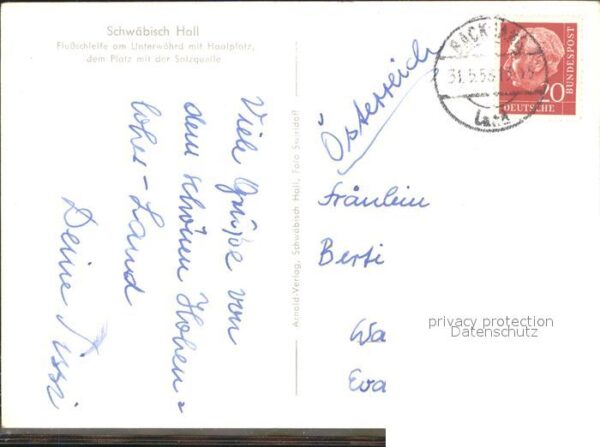 Schwäbisch Hall
Flußschleife am Unterwöhrd mit Haalplatz,
dem Platz mit der Salzquelle
Viele Grüße von
dem schönen Hohen=
lohe-Land
Deine Sissi
Arnold-Verlag, Schwäbisch Hall, Foto Swiridoff
BACKNANG
31.5.56
DEUTSCHE BUNDESPOST
20
Österreich
Fräulein
Berti
Eva
privacy protection
Datenschutz